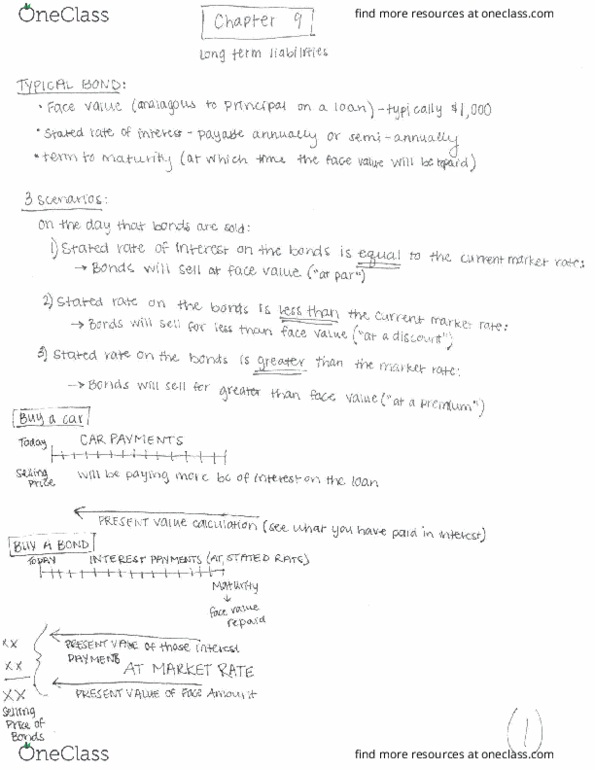 OneClass
find more resources at oneclass.com
Chapter 9
Long term liabilities
TYPICAL BOND:
• Face value (analagous to principal on a loan) - typically $1,000
• Stated rate of interest - payable annually or semi-annually
• term to maturity (at which time the face value will be repaid)
3 scenarios:
on the day that bonds are sold:
1) Stated rate of interest on the bonds is equal to the current market rate:
→ Bonds will sell at face value ("at par")
2) Stated rate on the bonds is less than the current market rate:
→ Bonds will sell for less than face value ("at a discount")
3) Stated rate on the bonds is greater than the market rate:
→ Bonds will sell for greater than face value ("at a premium")
Buy a car
Today CAR PAYMENTS
Selling Price will be paying more bc of interest on the loan
PRESENT value calculation (see what you have paid in interest)
BUY A BOND
TODAY INTEREST PAYMENTS (AT STATED RATE)
Maturity
↓
face value
repaid
XX PRESENT VALUE of those interest
PAYMENTS
XX AT MARKET RATE
XX PRESENT VALUE of Face Amount
Selling
Price of
Bonds
1
OneClass
find more resources at oneclass.com